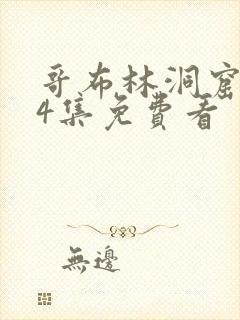 哥布林洞窟
4集免費看
無邊